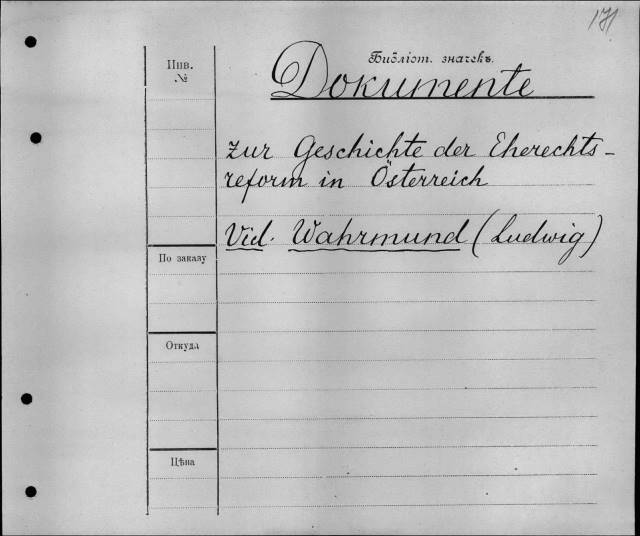 171
Библіот. значекъ.
Инв.
№
Dokumente
zur Geschichte der Eherechts-
reform in Österreich
Vid. Wahrmund (Ludwig)
По заказу
Откуда
Цѣна